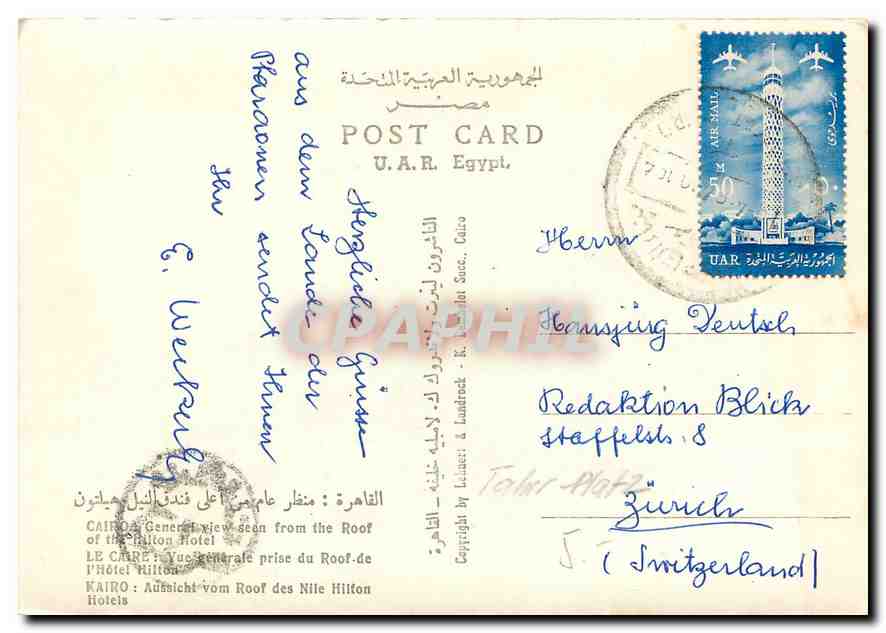 الجمهورية العربية المتحدة
مصر
POST CARD
U.A.R. Egypt.
Herzliche Grüsse
aus dem Lande der
Pharaonen sendet Ihnen
Ihr
E.
AIR MAIL
M
50
UAR الجمهورية العربية المتحدة
بريد جوى
٥٠
Herrn
Hansjürg Deutsch
Redaktion Blick
Staffelstr. 8
Zürich
(Switzerland)
Tahir Platz
5.-
القاهرة : منظر عام من أعلى فندق النيل هيلتون
CAIRO: General view seen from the Roof
of the Hilton Hotel
LE CAIRE: Vue générale prise du Roof-de
l'Hôtel Hilton
KAIRO: Aussicht vom Roof des Nile Hilton
Hotels
الناشرون لينرت ولاندروك ك. لامبليه خليفه - القاهرة
Copyright by Lehnert & Landrock - K. Lambelet Succ., Cairo
CPAPHIL